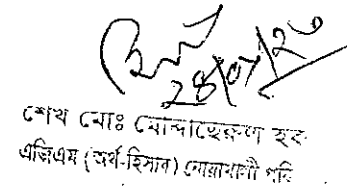 28/07/20
শেখ মোঃ মোদাচ্ছেরুল হক
এজিএম (অর্থ-হিসাব) নোয়াখালী পবি